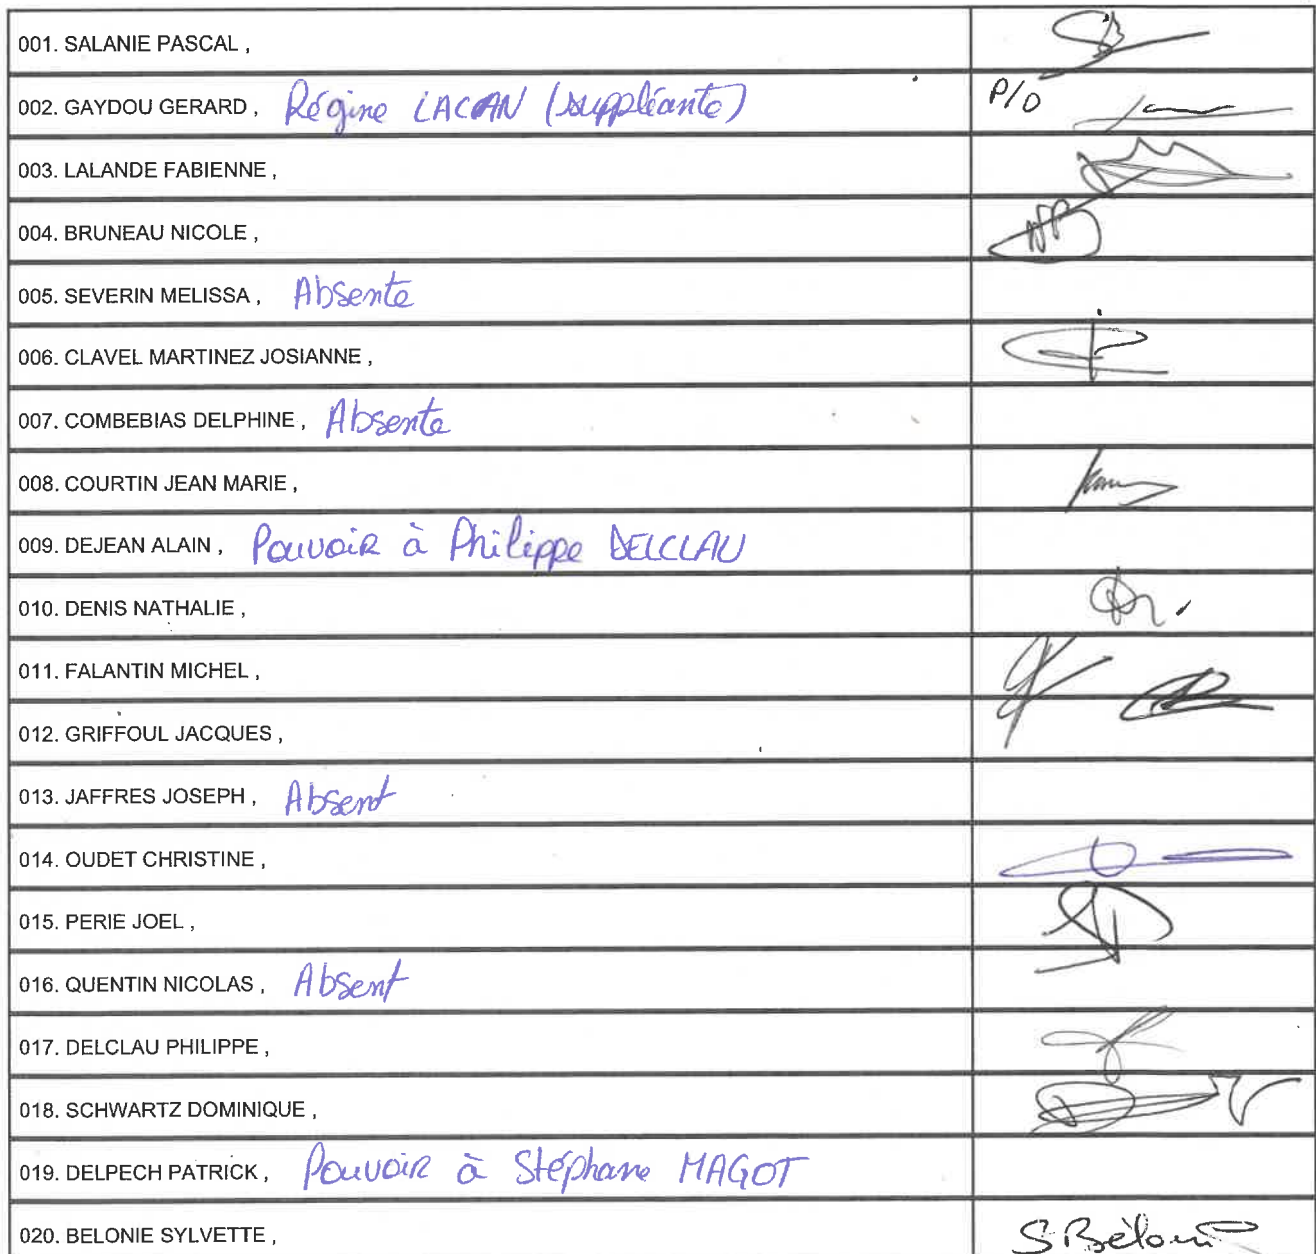 001. SALANIE PASCAL ,
002. GAYDOU GERARD , Régine LACAN (suppléante) P/O
003. LALANDE FABIENNE ,
004. BRUNEAU NICOLE ,
005. SEVERIN MELISSA , Absente
006. CLAVEL MARTINEZ JOSIANNE ,
007. COMBEBIAS DELPHINE , Absente
008. COURTIN JEAN MARIE ,
009. DEJEAN ALAIN , Pouvoir à Philippe DELCLAU
010. DENIS NATHALIE ,
011. FALANTIN MICHEL ,
012. GRIFFOUL JACQUES ,
013. JAFFRES JOSEPH , Absent
014. OUDET CHRISTINE ,
015. PERIE JOEL ,
016. QUENTIN NICOLAS , Absent
017. DELCLAU PHILIPPE ,
018. SCHWARTZ DOMINIQUE ,
019. DELPECH PATRICK , Pouvoir à Stéphane MAGOT
020. BELONIE SYLVETTE ,